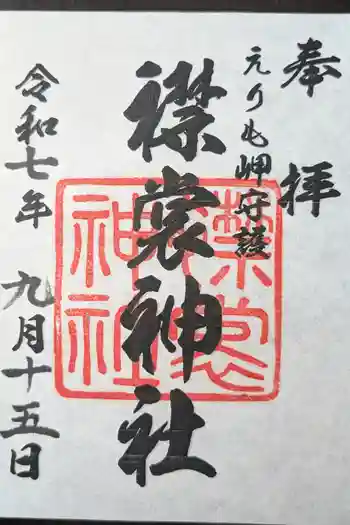 奉拝
えりも岬守護
襟裳神社
令和七年 九月十五日
襟裳神社